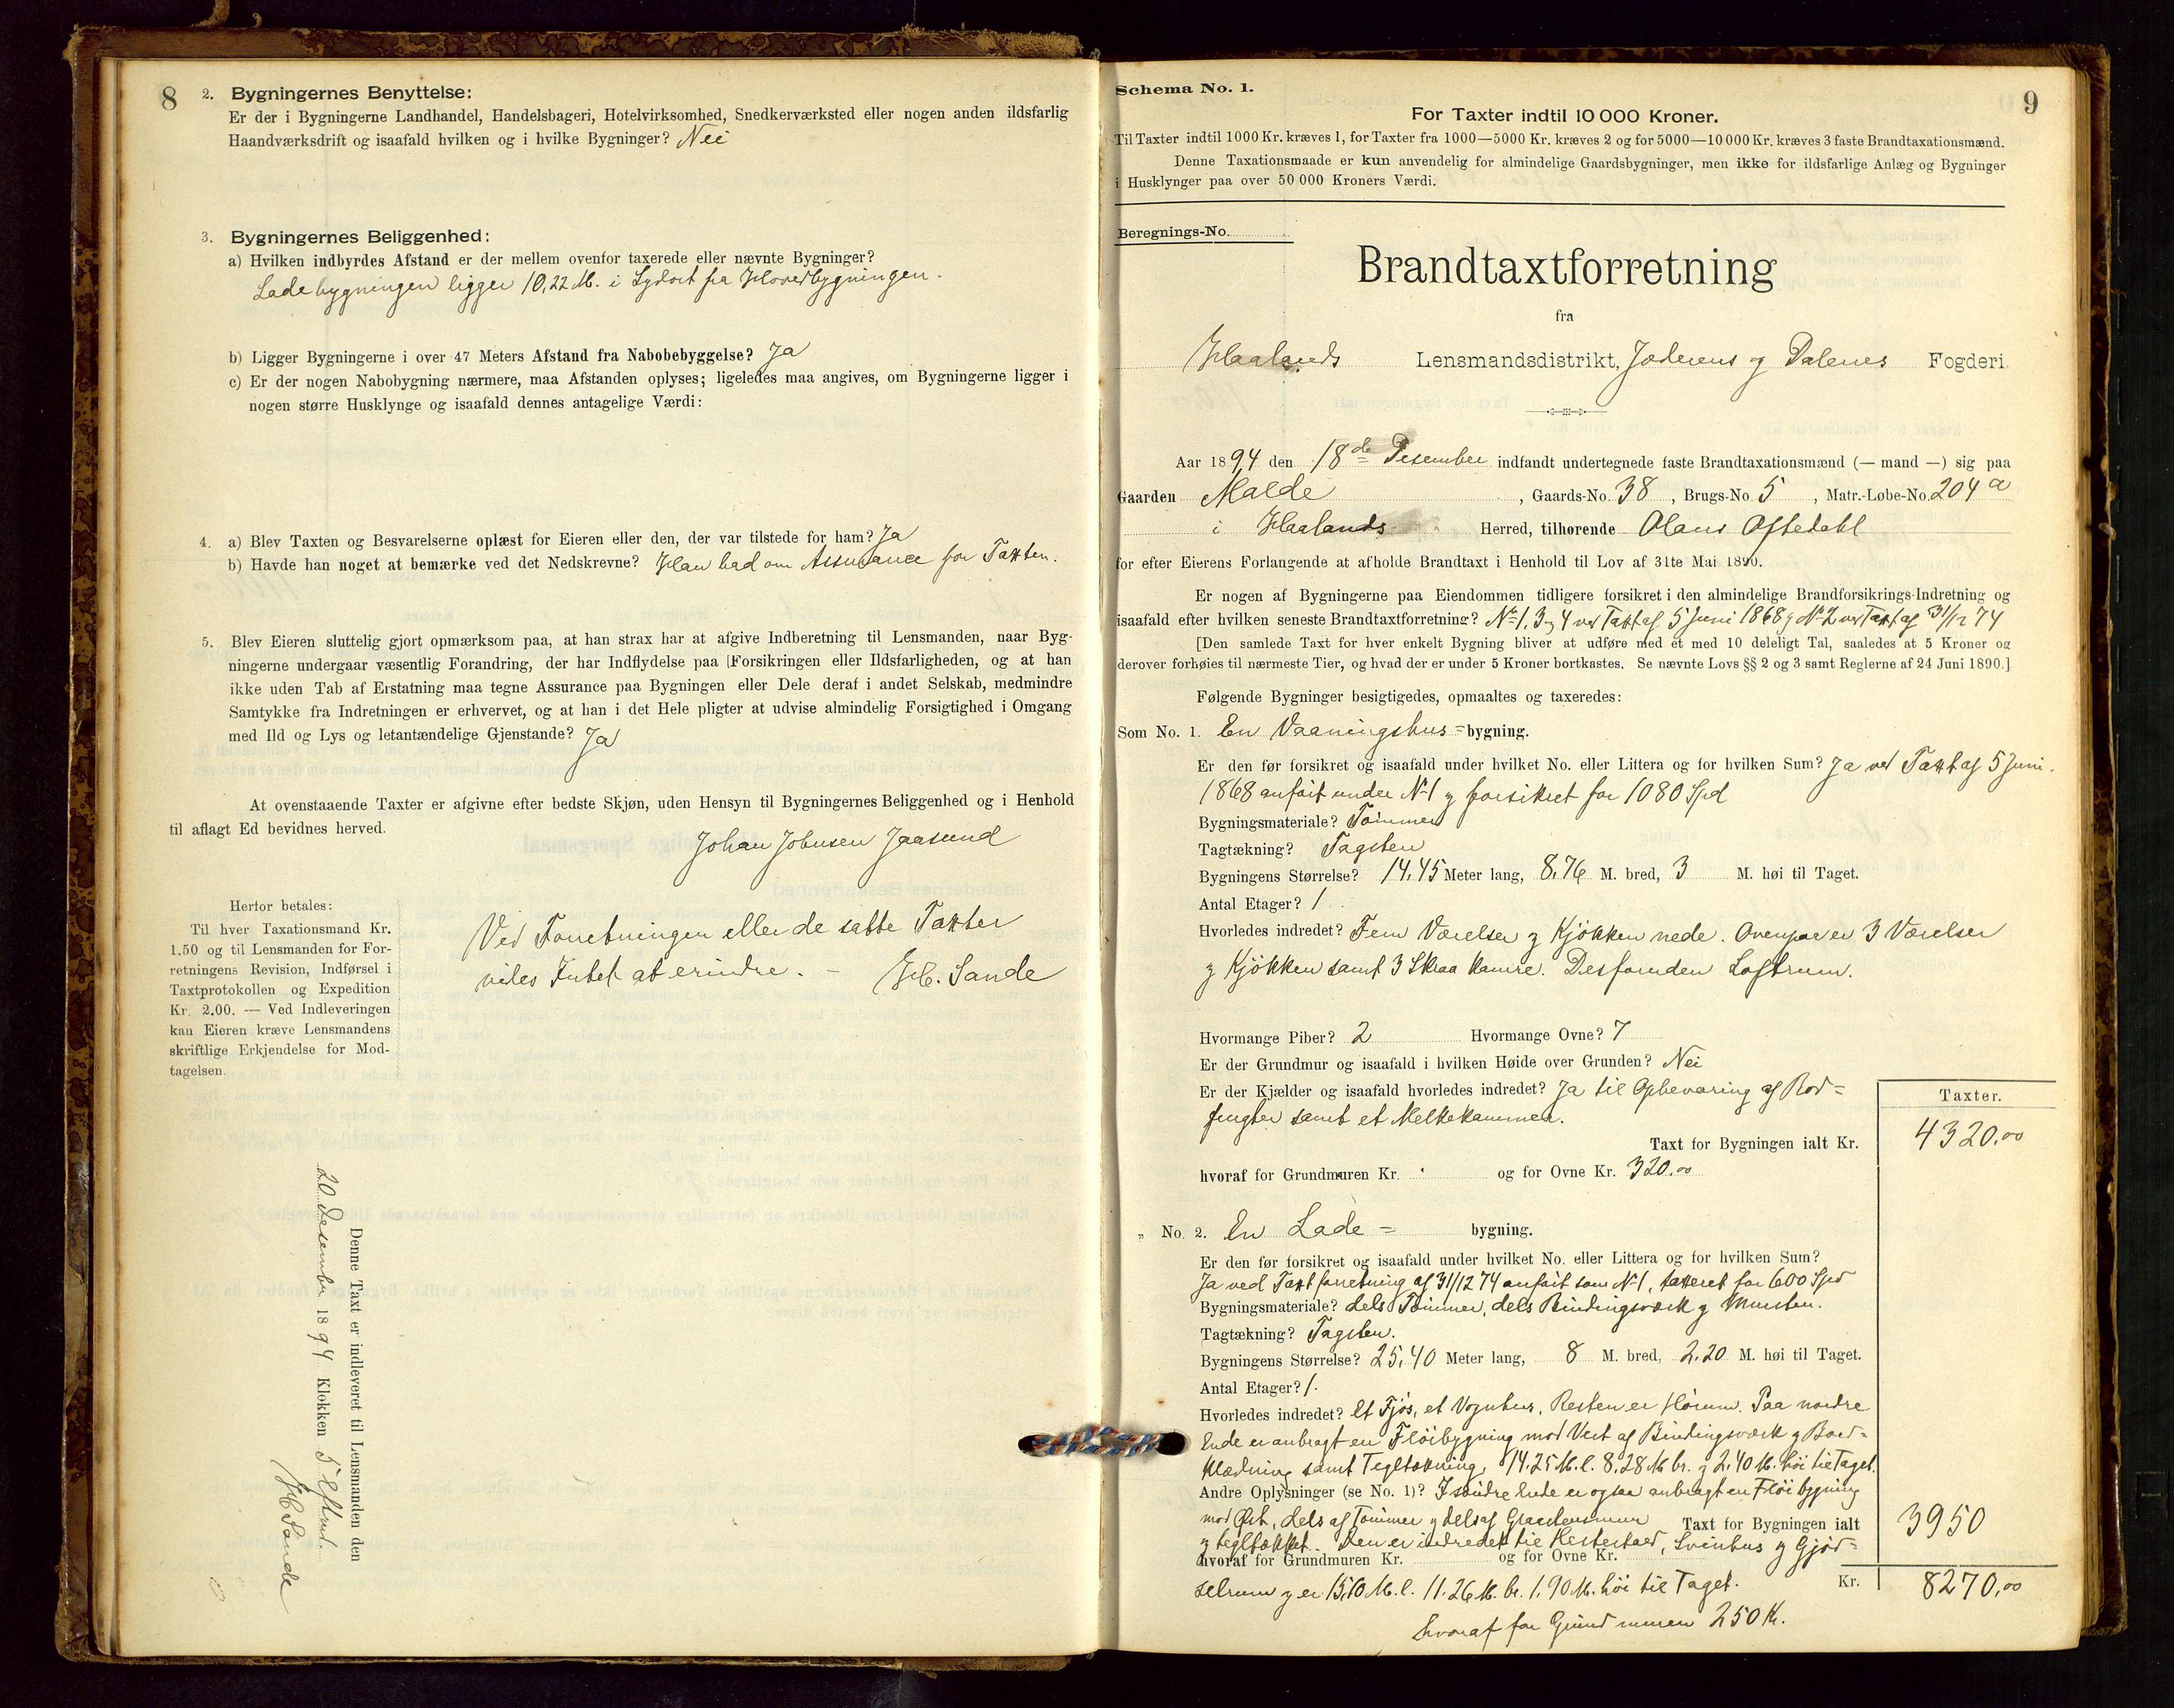 8
2. Bygningernes Benyttelse:
Er der i Bygningerne Landhandel, Handelsbageri, Hotelvirksomhed, Snedkerværksted eller nogen anden ildsfarlig
Haandværksdrift og isaafald hvilken og i hvilke Bygninger? Nei
3. Bygningernes Beliggenhed:
a) Hvilken indbyrdes Afstand er der mellem ovenfor taxerede eller nævnte Bygninger?
Ladebygningen ligger 10,22 M. i Sydost fra Hovedbygningen.
b) Ligger Bygningerne i over 47 Meters Afstand fra Nabobebyggelse? Ja
c) Er der nogen Nabobygning nærmere, maa Afstanden oplyses; ligeledes maa angives, om Bygningerne ligger i
nogen større Husklynge og isaafald dennes antagelige Værdi:
4. a) Blev Taxten og Besvarelserne oplæst for Eieren eller den, der var tilstede for ham? Ja
b) Havde han noget at bemærke ved det Nedskrevne? Han bad om Assurance for Taxten.
5. Blev Eieren sluttelig gjort opmærksom paa, at han strax har at afgive Indberetning til Lensmanden, naar Byg-
ningerne undergaar væsentlig Forandring, der har Indflydelse paa Forsikringen eller Ildsfarligheden, og at han
ikke uden Tab af Erstatning maa tegne Assurance paa Bygningen eller Dele deraf i andet Selskab, medmindre
Samtykke fra Indretningen er erhvervet, og at han i det Hele pligter at udvise almindelig Forsigtighed i Omgang
med Ild og Lys og letantændelige Gjenstande? Ja
At ovenstaaende Taxter er afgivne efter bedste Skjøn, uden Hensyn til Bygningernes Beliggenhed og i Henhold
til aflagt Ed bevidnes herved.
Johan Johnsen Jaasund
Herfor betales:
Til hver Taxationsmand Kr.
1.50 og til Lensmanden for For-
retningens Revision, Indførsel i
Taxtprotokollen og Expedition
Kr. 2.00. — Ved Indleveringen
kan Eieren kræve Lensmandens
skriftlige Erkjendelse for Mod-
tagelsen.
Ved Forretningen eller de satte Taxter
vides Intet at erindre. – Sande
Denne Taxt er indleveret til Lensmanden den
20 Desember 1894 Klokken 5 Eftmd.
Sande
9
Schema No. 1.
For Taxter indtil 10 000 Kroner.
Til Taxter indtil 1000 Kr. kræves 1, for Taxter fra 1000—5000 Kr. kræves 2 og for 5000—10 000 Kr. kræves 3 faste Brandtaxationsmænd.
Denne Taxationsmaade er kun anvendelig for almindelige Gaardsbygninger, men ikke for ildsfarlige Anlæg og Bygninger
i Husklynger paa over 50 000 Kroners Værdi.
Beregnings-No.
Brandtaxtforretning
fra
Haalands Lensmandsdistrikt, Jæderens og Dalenes Fogderi.
Aar 1894 den 18de Desember indfandt undertegnede faste Brandtaxationsmænd (— mand —) sig paa
Gaarden Malde, Gaards-No. 38, Brugs-No. 5, Matr.-Løbe-No. 204 a
i Haalands Herred, tilhørende Olaus Oftedahl
for efter Eierens Forlangende at afholde Brandtaxt i Henhold til Lov af 31te Mai 1890.
Er nogen af Bygningerne paa Eiendommen tidligere forsikret i den almindelige Brandforsikrings-Indretning og
isaafald efter hvilken seneste Brandtaxtforretning? No 1, 3 og 4 ved Taxt af 5 Juni 1868 og No 2 ved Taxt af 31/12 74
[Den samlede Taxt for hver enkelt Bygning bliver at udføre med et med 10 deleligt Tal, saaledes at 5 Kroner og
derover forhøies til nærmeste Tier, og hvad der er under 5 Kroner bortkastes. Se nævnte Lovs §§ 2 og 3 samt Reglerne af 24 Juni 1890.]
Følgende Bygninger besigtigedes, opmaaltes og taxeredes:
Som No. 1. En Vaaningshus=bygning.
Er den før forsikret og isaafald under hvilket No. eller Littera og for hvilken Sum? Ja ved Taxt af 5 Juni
1868 anført under No 1 og forsikret for 1080 Spd
Bygningsmateriale? Tømmer
Tagtækning? Tagsten
Bygningens Størrelse? 14,45 Meter lang, 8,76 M. bred, 3 M. høi til Taget.
Antal Etager? 1
Hvorledes indredet? Fem Værelser og Kjøkken nede. Ovenpaa er 3 Værelser
og Kjøkken samt 3 Skraa Kamre. Desforuden Loftrum.
Hvormange Piber? 2 Hvormange Ovne? 7
Er der Grundmur og isaafald i hvilken Høide over Grunden? Nei
Er der Kjælder og isaafald hvorledes indredet? Ja til Opbevaring af Rod=
frugter samt et Melkekammer.
Taxter.
Taxt for Bygningen ialt Kr. 4320.00
hvoraf for Grundmuren Kr. og for Ovne Kr. 320.00
„ No. 2. En Lade= bygning.
Er den før forsikret og isaafald under hvilket No. eller Littera og for hvilken Sum?
Ja ved Taxtforretning af 31/12 74 anført som No 1, taxeret for 600 Spd
Bygningsmateriale? dels Tømmer, dels Bindingsværk og Mursten.
Tagtækning? Tagsten.
Bygningens Størrelse? 25,40 Meter lang, 8 M. bred, 2,20 M. høi til Taget.
Antal Etager? 1.
Hvorledes indredet? Et Fjøs, et Vognhus, Resten er Hørum. Paa nordre
Ende er anbragt en Fløibygning mod Vest af Bindingsværk og Bord=
klædning samt Tegltækning, 14,25 M. l. 8,28 M br. og 2,40 M. høi til Taget.
Andre Oplysninger (se No. 1)? I søndre Ende er ogsaa anbragt en Fløibygning
mod Øst, dels af Tømmer og dels af Graastensmur Taxt for Bygningen ialt 3950
og tegltækket. Den er indredet til Hestestald, Svinhus og Gjød=
hvoraf for Grundmuren Kr. og for Ovne Kr.
selrum og er 15,10 M. l. 11,26 M. br. 1,90 M. høi til Taget. Kr. 8270,00
hvoraf for Grundmuren 250 Kr.